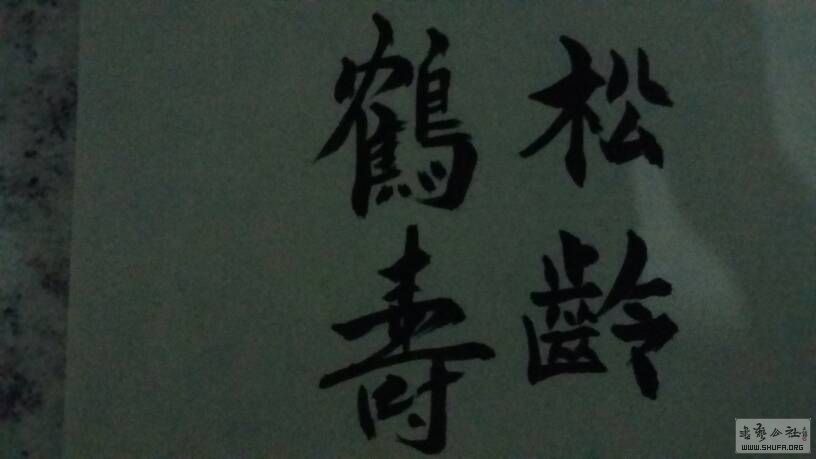 松齡
鶴壽
書藝公社
WWW.SHUFA.ORG